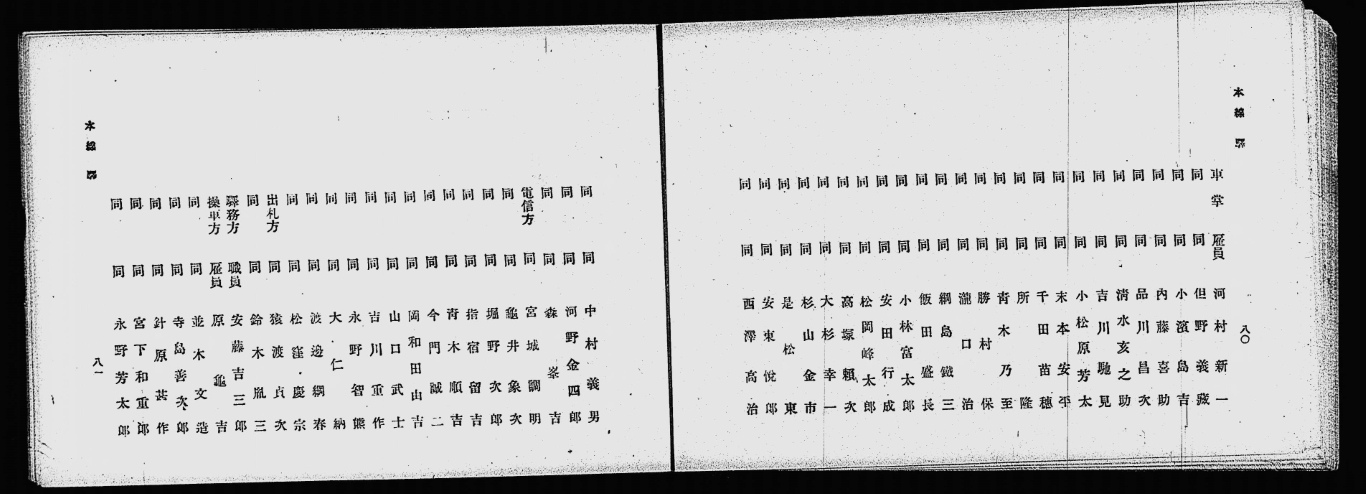 本線
八〇
車掌 雇員 河村新一
同 同 但野義藏
同 同 小濱島吉
同 同 內藤喜助
同 同 品川昌次
同 同 淸水亥之助
同 同 吉川馳見
同 同 小松原芳太
同 同 末本安平
同 同 千田苗穗
同 同 所隆
同 同 靑木乃至
同 同 勝村保
同 同 瀧口治
同 同 綱島鐵三
同 同 飯田盛長
同 同 小林富太郎
同 同 安田行成
同 同 松岡峰太郎
同 同 高塚賴次
同 同 大杉幸一
同 同 杉山金市
同 同 是松東
同 同 安東悅郎
同 同 西澤高治
同 同 中村義男
同 同 河野金四郎
同 同 森峯吉
電信方 同 宮城調明
同 同 龜井象次
同 同 堀野次郎
同 同 指宿留吉
同 同 靑木順吉
同 同 今門誠二
同 同 岡和田由吉
同 同 山口武士
同 同 吉川重作
同 同 永野智熊
同 同 大仁納
同 同 渡邊綱春
同 同 松窪慶宗
出札方 同 猿渡貞次
同 同 鈴木胤三
驛務方 職員 安藤吉三郎
操車方 雇員 原龜吉
同 同 並木文造
同 同 寺島善次郎
同 同 針原甚作
同 同 宮下和重郎
同 同 永野芳太郎
本線
八一